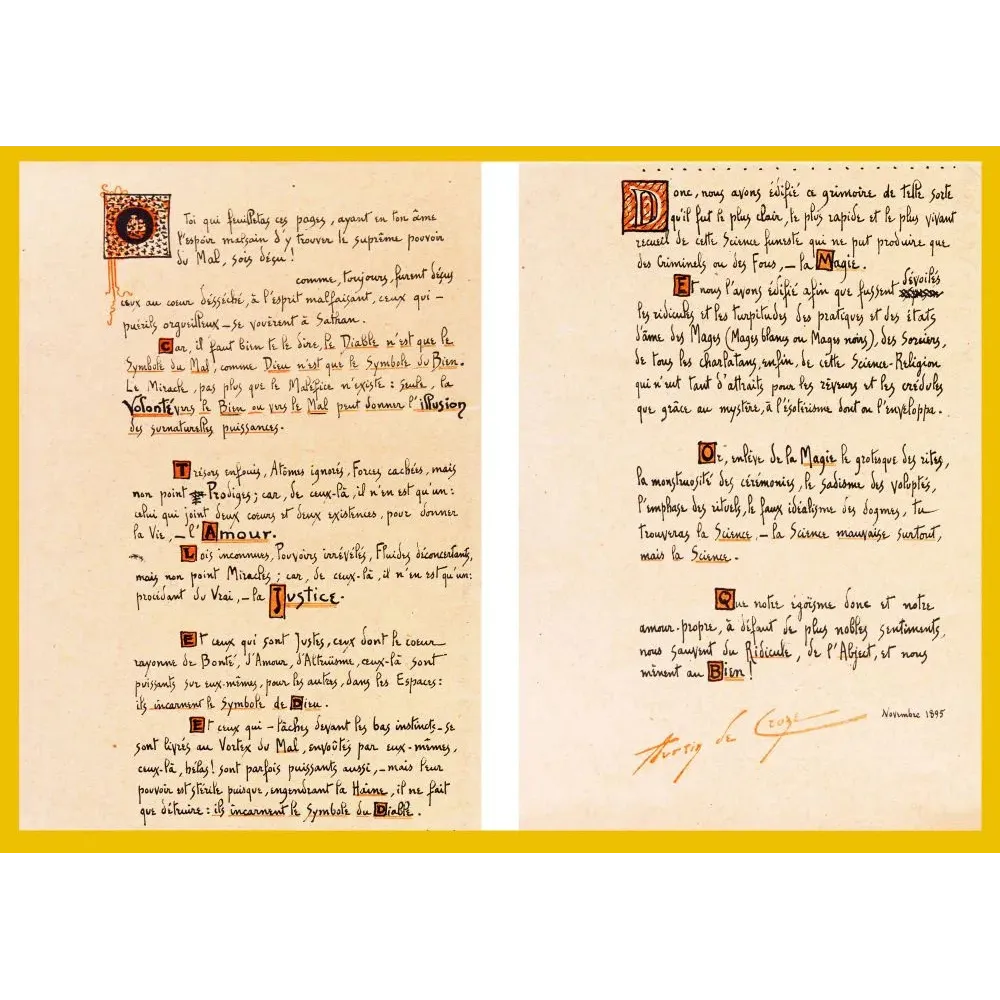 O Toi qui feuilletas ces pages, ayant en ton âme
l'espoir malsain d'y trouver le suprême pouvoir
du Mal, sois déçu !
comme, toujours, furent déçus
ceux au cœur désséché, à l'esprit malfaisant, ceux qui –
puérils orgueilleux – se vouèrent à Sathan.
Car, il faut bien te le dire, le Diable n'est que le
Symbole du Mal, comme Dieu n'est que le Symbole du Bien.
Le Miracle, pas plus que le Maléfice n'existe : seule, la
Volonté vers le Bien ou vers le Mal peut donner l'illusion
des surnaturelles puissances.
Trésors enfouis, Atômes ignorés, Forces cachées, mais
non point Prodiges ; car, de ceux-là, il n'en est qu'un :
celui qui joint deux cœurs et deux existences, pour donner
la Vie, – l'Amour.
Lois inconnues, Pouvoirs irrévélés, Fluides déconcertants,
mais non point Miracles ; car, de ceux-là, il n'en est qu'un :
procédant du Vrai, – la Justice.
Et ceux qui sont Justes, ceux dont le cœur
rayonne de Bonté, d'Amour, d'Altruïsme, ceux-là sont
puissants sur eux-mêmes, pour les autres, dans les Espaces :
ils incarnent le Symbole de Dieu.
Et ceux qui – lâches devant les bas instincts – se
sont livrés au Vortex du Mal, envoûtés par eux-mêmes,
ceux-là, hélas ! sont parfois puissants aussi, – mais leur
pouvoir est stérile puisque, engendrant la Haine, il ne fait
que détruire : ils incarnent le Symbole du Diable.
Donc, nous avons édifié ce grimoire de telle sorte
qu'il fut le plus clair, le plus rapide et le plus vivant
recueil de cette Science funeste qui ne put produire que
des Criminels ou des Fous, – la Magie.
Et nous l'avons édifié afin que fussent dévoilés
les ridicules et les turpitudes des pratiques et des états
d'âme des Mages (Mages blancs ou Mages noirs), des Sorciers,
de tous les charlatans, enfin, de cette Science-Religion
qui n'eut tant d'attraits pour les rêveurs et les crédules
que grâce au mystère, à l'ésotérisme dont on l'enveloppa.
Or, enlève de la Magie le grotesque des rites,
la monstruosité des cérémonies, le sadisme des voluptés,
l'emphase des rituels, le faux idéalisme des dogmes, tu
trouveras la Science, – la Science mauvaise surtout,
mais la Science.
Que notre égoïsme donc et notre
amour-propre, à défaut de plus nobles sentiments,
nous sauvent du Ridicule, de l'Abject, et nous
mènent au Bien !
Novembre 1895
Austin de Croze